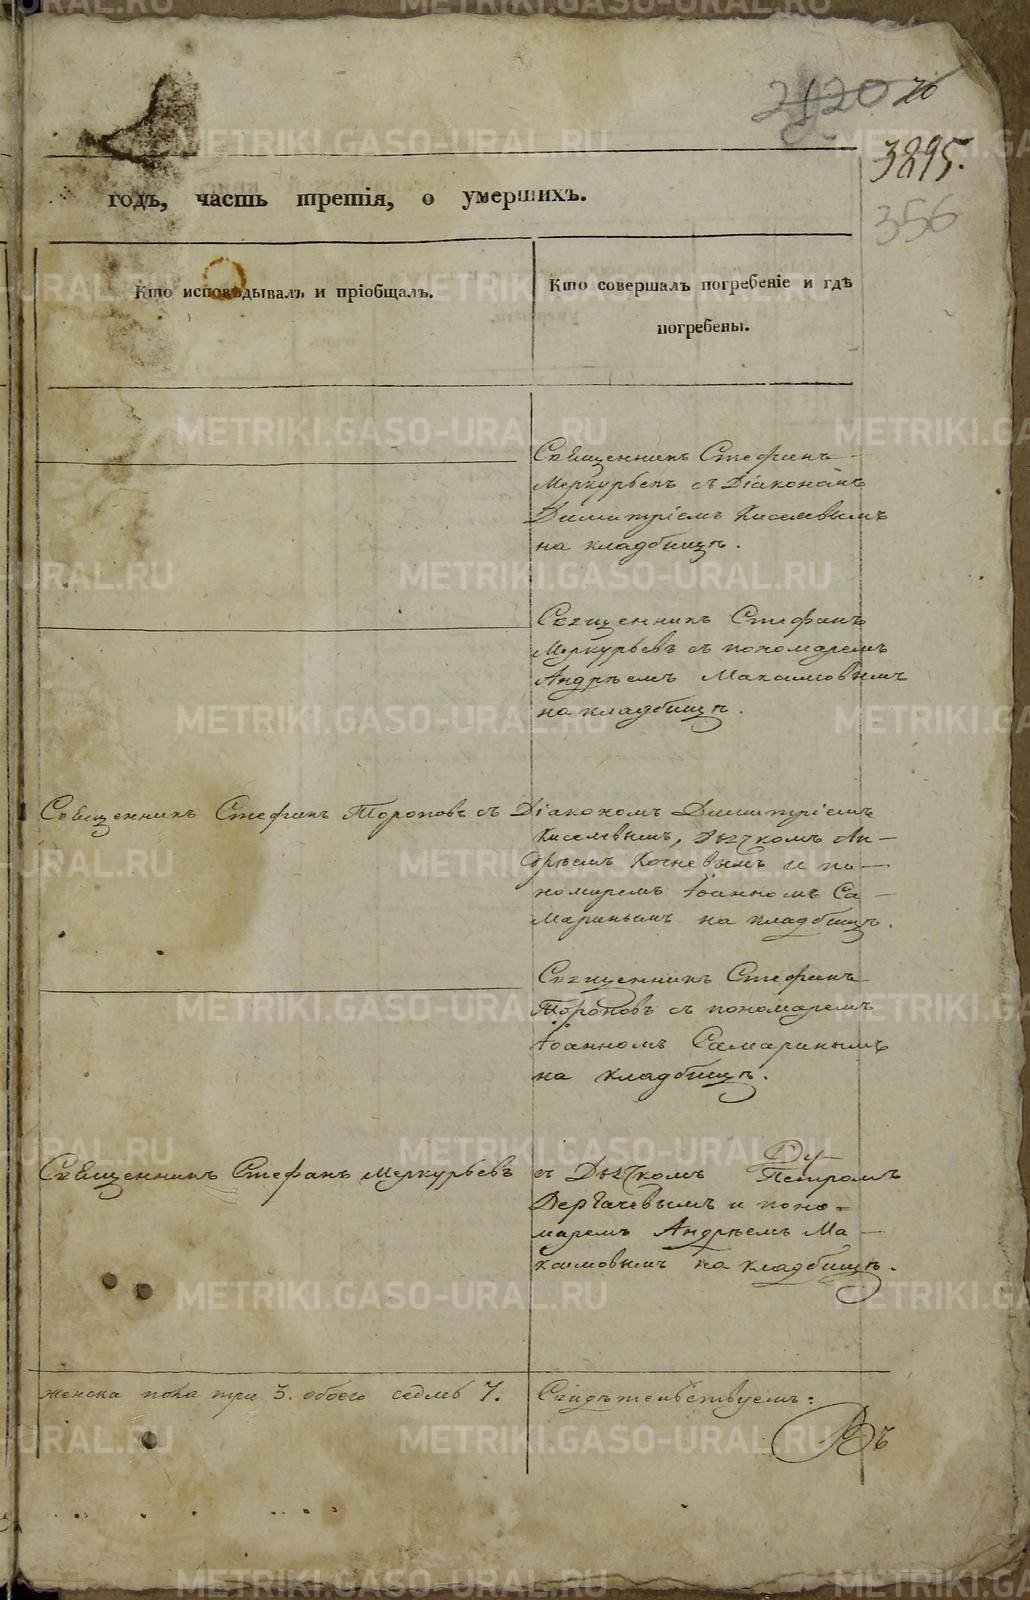 3895.
356
годъ, часть третія, о умершихъ.
Кто исповѣдывалъ и пріобщалъ.
Кто совершалъ погребеніе и гдѣ
погребены.
Священникъ Стефанъ
Меркурьевъ съ Діакономъ
Димитріемъ Киселевымъ
на кладбищѣ.
Священникъ Стефанъ
Меркурьевъ съ пономаремъ
Андрѣемъ Максимовымъ
на кладбищѣ.
Священникъ Стефанъ Тороповъ съ Діакономъ Димитріемъ
Киселевымъ, дьячкомъ Ан-
дрѣемъ Кочневымъ и по-
номаремъ Іоанномъ Са-
маринымъ на кладбищѣ.
Священникъ Стефанъ
Тороповъ съ пономаремъ
Іоанномъ Самаринымъ
на кладбищѣ.
Священникъ Стефанъ Меркурьевъ съ Дьячкомъ Петромъ
Дергачевымъ и поно-
маремъ Андрѣемъ Ма-
ксимовымъ на кладбищѣ.
женска пола три 3. обоего седмь 7.
Свидѣтельствуемъ:
Въ
METRIKI.GASO-URAL.RU